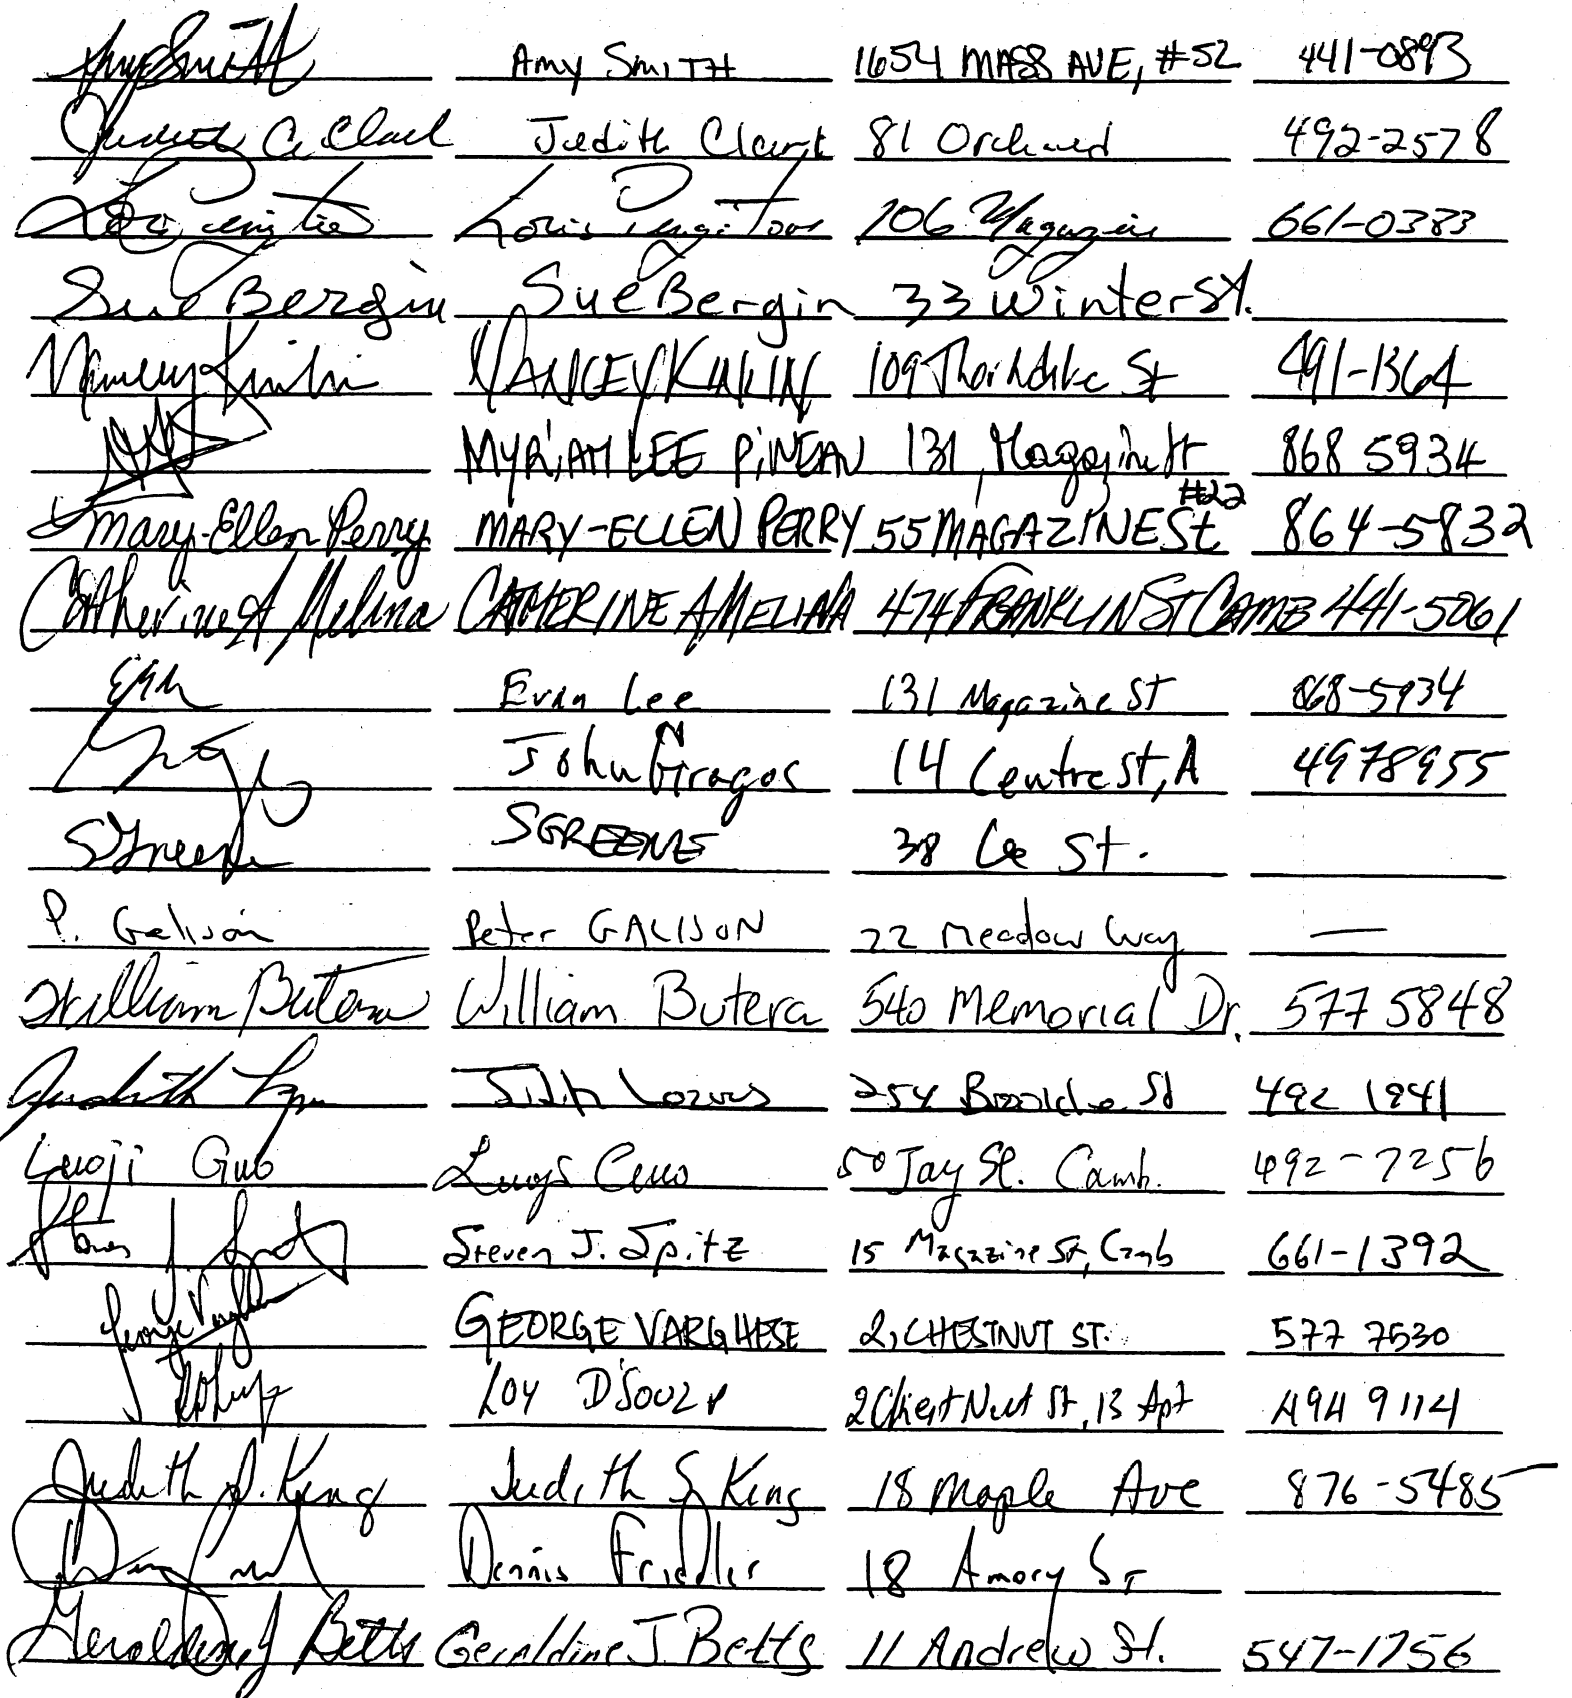 Amy Smith Amy SMITH 1654 MASS AVE, #52 441-0893
Judith C. Clark Judith Clark 81 Orchard 492-2578
Loris 106 Magazine 661-0383
Sue Bergin Sue Bergin 33 Winter St.
Nancey NANCEY 109 Thorndike St 491-1364
MYRiAM LEE PiNEAU 131 Magazine St 868 5934
Mary-Ellen Perry MARY-ELLEN PERRY 55 MAGAZINE St #22 864-5832
Catherine A Melina CATHERINE A MELINA 474 FRANKLIN ST CAMB 441-5061
Evan Lee 131 Magazine ST 868-5934
John Giragos 14 Centre St, A 4978955
S Greene S GREENE 38 Lee St.
P. Galison Peter GALISON 22 Meadow Way —
William Butera William Butera 540 Memorial Dr. 577 5848
Judith Judith 254 St 492 1941
Luoji Guo Luoji Guo 50 Jay St. Camb. 492-7256
Steven J. Spitz Steven J. Spitz 15 Magazine St, Camb 661-1392
George Varghese GEORGE VARGHESE 2, CHESTNUT ST. 577 7530
LOY D'SOUZA 2 ChestNut St, 13 Apt 494 9114
Judith S. King Judith S King 18 Maple Ave 876-5485
Dennis Friedler 18 Amory St
Geraldine J Betts Geraldine J. Betts 11 Andrew St. 547-1756